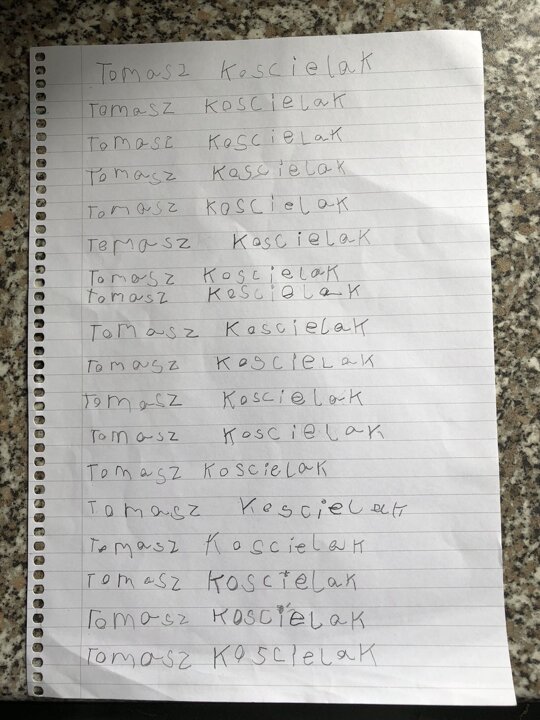 Tomasz Koscielak
Tomasz Koscielak
Tomasz Koscielak
Tomasz Koscielak
Tomasz Koscielak
Temasz Koscielak
Tomasz Koscielak
Tomasz Koscielak
Tomasz Koscielak
Tomasz Koscielak
Tomasz Koscielak
Tomasz Koscielak
Tomasz Koscielak
Tomasz Koscielak
Tomasz Koscielak
Tomasz Koscielak
Tomasz Koscielak
Tomasz Koscielak